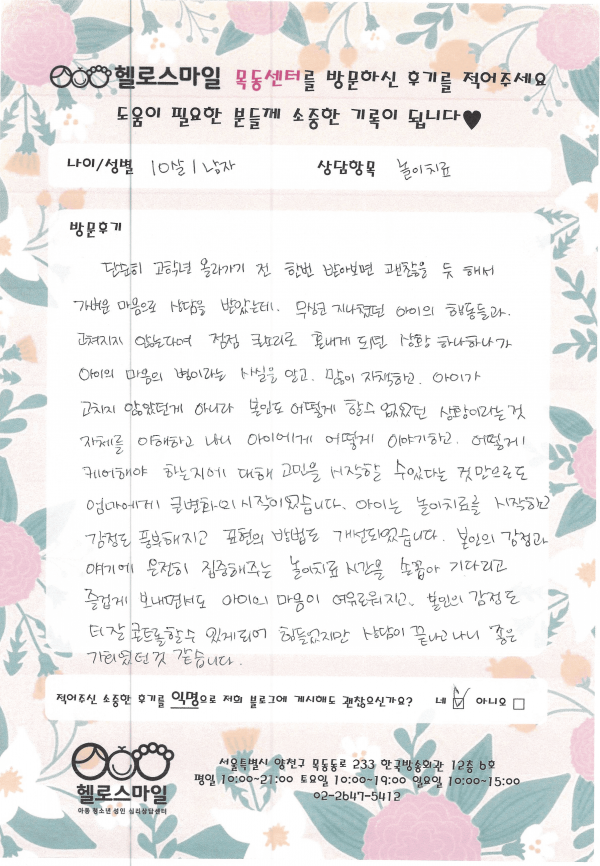 헬로스마일 목동센터를 방문하신 후기를 적어주세요
도움이 필요한 분들께 소중한 기록이 됩니다♥
나이/성별 10살 / 남자 상담항목 놀이치료
방문후기
단순히 고학년 올라가기 전 한번 받아보면 괜찮을 듯 해서
가벼운 마음으로 상담을 받았는데. 무심코 지나쳤던 아이의 행동들과.
고쳐지지 않는다며 점점 큰소리로 혼내게 되던 상황 하나하나가
아이의 마음의 병이라는 사실을 알고. 많이 자책하고. 아이가
고치지 않았던게 아니라 본인도 어떻게 할수 없었던 상황이라는 것
자체를 이해하고 나니 아이에게 어떻게 이야기하고. 어떻게
케어해야 하는지에 대해 고민을 시작할 수있다는 것만으로도
엄마에게 큰변화의 시작이었습니다. 아이는 놀이치료를 시작하고
감정도 풍부해지고 표현의 방법도 개선되었습니다. 본인의 감정과
얘기에 온전히 집중해주는 놀이치료 시간을 손꼽아 기다리고
즐겁게 보내면서도 아이의 마음이 여유로워지고. 본인의 감정도
더 잘 콘트롤할수 있게되어 힘들었지만 상담이 끝나고 나니 좋은
기회였던것 같습니다.
적어주신 소중한 후기를 익명으로 저희 블로그에 게시해도 괜찮으신가요? 네 ☑ 아니오 □
헬로스마일
아동 청소년 성인 심리상담센터
서울특별시 양천구 목동동로 233 한국방송회관 12층 6호
평일 10:00~21:00 토요일 10:00~19:00 일요일 10:00~15:00
02-2647-5412